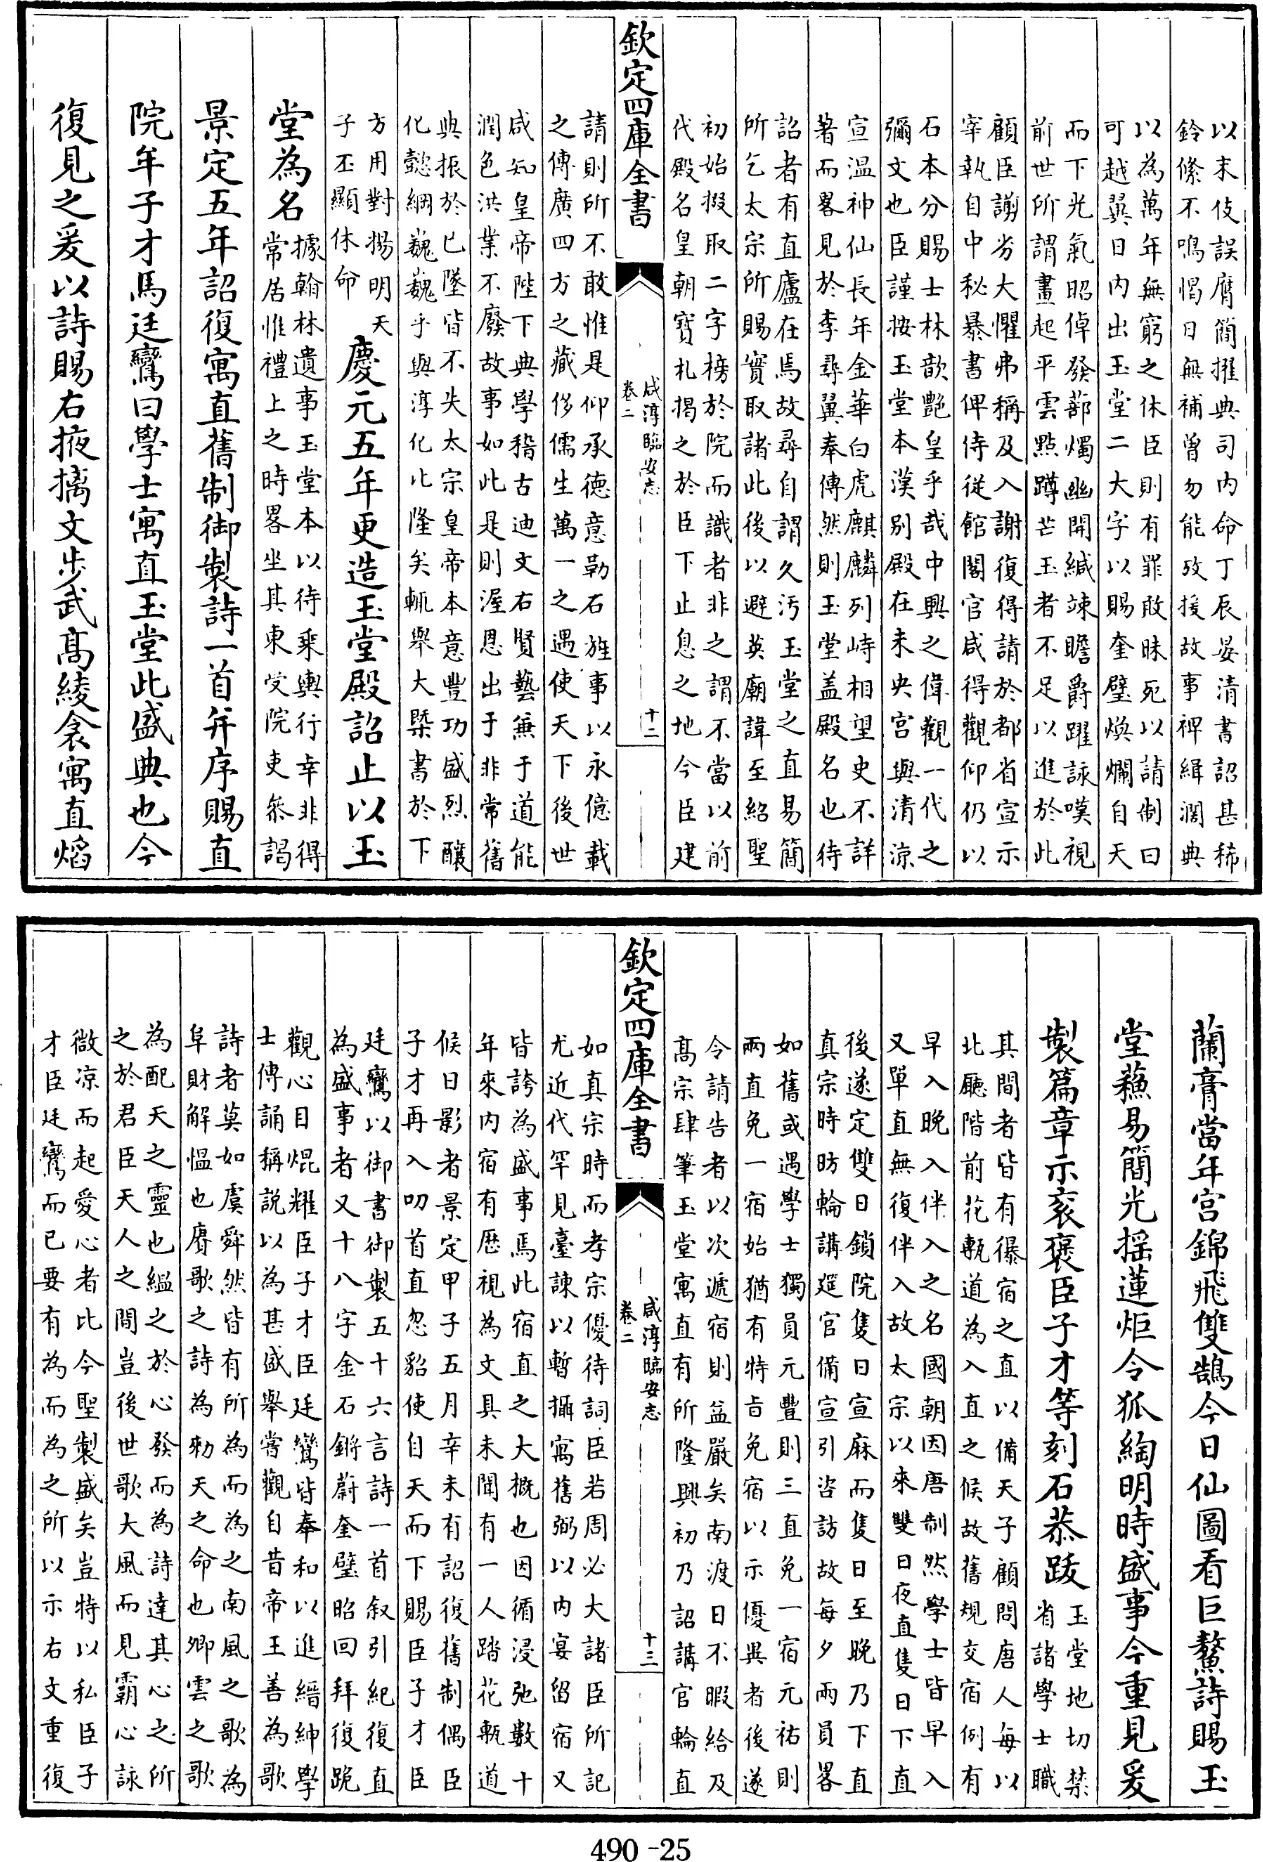 以末伎誤膺簡擢典司内命丁辰晏清書詔甚稀
鈴絛不鳴愒日無補曽勿能攷援故事裨緝濶典
以為萬年無窮之休臣則有罪敢昧死以請制曰
可越翼日内出玉堂二大字以賜奎璧煥爛自天
而下光氣昭倬發蔀燭幽開緘竦瞻爵躍詠嘆視
前世所謂畫起平雲點蹲芒玉者不足以進於此
顧臣謭劣大懼弗稱及入謝復得請於都省宣示
宰執自中秘暴書俾侍從館閣官咸得觀仰仍以
石本分賜士林歆艷皇乎哉中興之偉觀一代之
彌文也臣謹按玉堂本漢别殿在未央宫與清凉
宣温神仙長年金華白虎麒麟列峙相望史不詳
著而畧見於李尋翼奉傳然則玉堂盖殿名也待
詔者有直廬在焉故尋自謂久汚玉堂之直易簡
所乞太宗所賜實取諸此後以避英廟諱至紹聖
初始掇取二字榜於院而識者非之謂不當以前
代殿名皇朝寳札揭之於臣下止息之地今臣建
欽定四庫全書
咸淳臨安志
卷二
十二
請則所不敢惟是仰承德意勒石旌事以永億載
之傳廣四方之藏侈儒生萬一之遇使天下後世
咸知皇帝陛下典學稽古迪文右賢藝兼于道能
潤色洪業不廢故事如此是則渥恩出于非常舊
典振於已墜皆不失太宗皇帝本意豐功盛烈釀
化懿綱巍巍乎與淳化比隆矣輒舉大槩書於下
方用對揚明天
子丕顯休命
慶元五年更造玉堂殿詔止以玉
堂為名
據翰林遺事玉堂本以待乘輿行幸非得
常居惟禮上之時畧坐其東受院吏叅謁
景定五年詔復寓直舊制御製詩一首并序賜直
院年子才馬廷鸞曰學士寓直玉堂此盛典也今
復見之爰以詩賜右掖摛文步武髙綾衾寓直焰
蘭膏當年宫錦飛雙鵠今日仙圖看巨鰲詩賜玉
堂蘓易簡光搖蓮炬令狐綯明時盛事今重見爰
製篇章示衮褒臣子才等刻石恭跋
玉堂地切禁
省諸學士職
其間者皆有儤宿之直以備天子顧問唐人每以
北廳階前花甎道為入直之候故舊規交宿例有
早入晚入伴入之名國朝因唐制然學士皆早入
又單直無復伴入故太宗以來雙日夜直隻日下直
後遂定雙日鎖院隻日宣麻而隻日至晚乃下直
真宗時昉輪講選官備宣引咨訪故每夕兩員畧
如舊或遇學士獨員元豐則三直免一宿元祐則
兩直免一宿始猶有特㫖免宿以示優異者後遂
今請告者以次遞宿則益嚴矣南渡日不暇給及
髙宗肆筆玉堂寓直有所隆興初乃詔講官輪直
欽定四庫全書
咸淳臨安志
卷二
十三
如真宗時而孝宗優待詞臣若周必大諸臣所記
尤近代罕見臺諫以暫攝寓舊弼以内宴留宿又
皆誇為盛事焉此宿直之大概也因循浸弛數十
年來内宿有歴視為文具未聞有一人踏花甎道
候日影者景定甲子五月辛未有詔復舊制偶臣
子才再入叨首直忽貂使自天而下賜臣子才臣
廷鸞以御書御製五十六言詩一首叙引紀復直
為盛事者又十八字金石鏘蔚奎璧昭回拜復跪
觀心目焜耀臣子才臣廷鸞皆奉和以進縉紳學
士傳誦稱説以為甚盛舉嘗觀自昔帝王善為歌
詩者莫如虞舜然皆有所為而為之南風之歌為
阜財解愠也賡歌之詩為勑天之命也卿雲之歌
為配天之靈也緼之於心發而為詩達其心之所
之於君臣天人之間豈後世歌大風而見霸心詠
微凉而起愛心者比今聖製盛矣豈特以私臣子
才臣廷鸞而已要有為而為之所以示右文重復
490-25